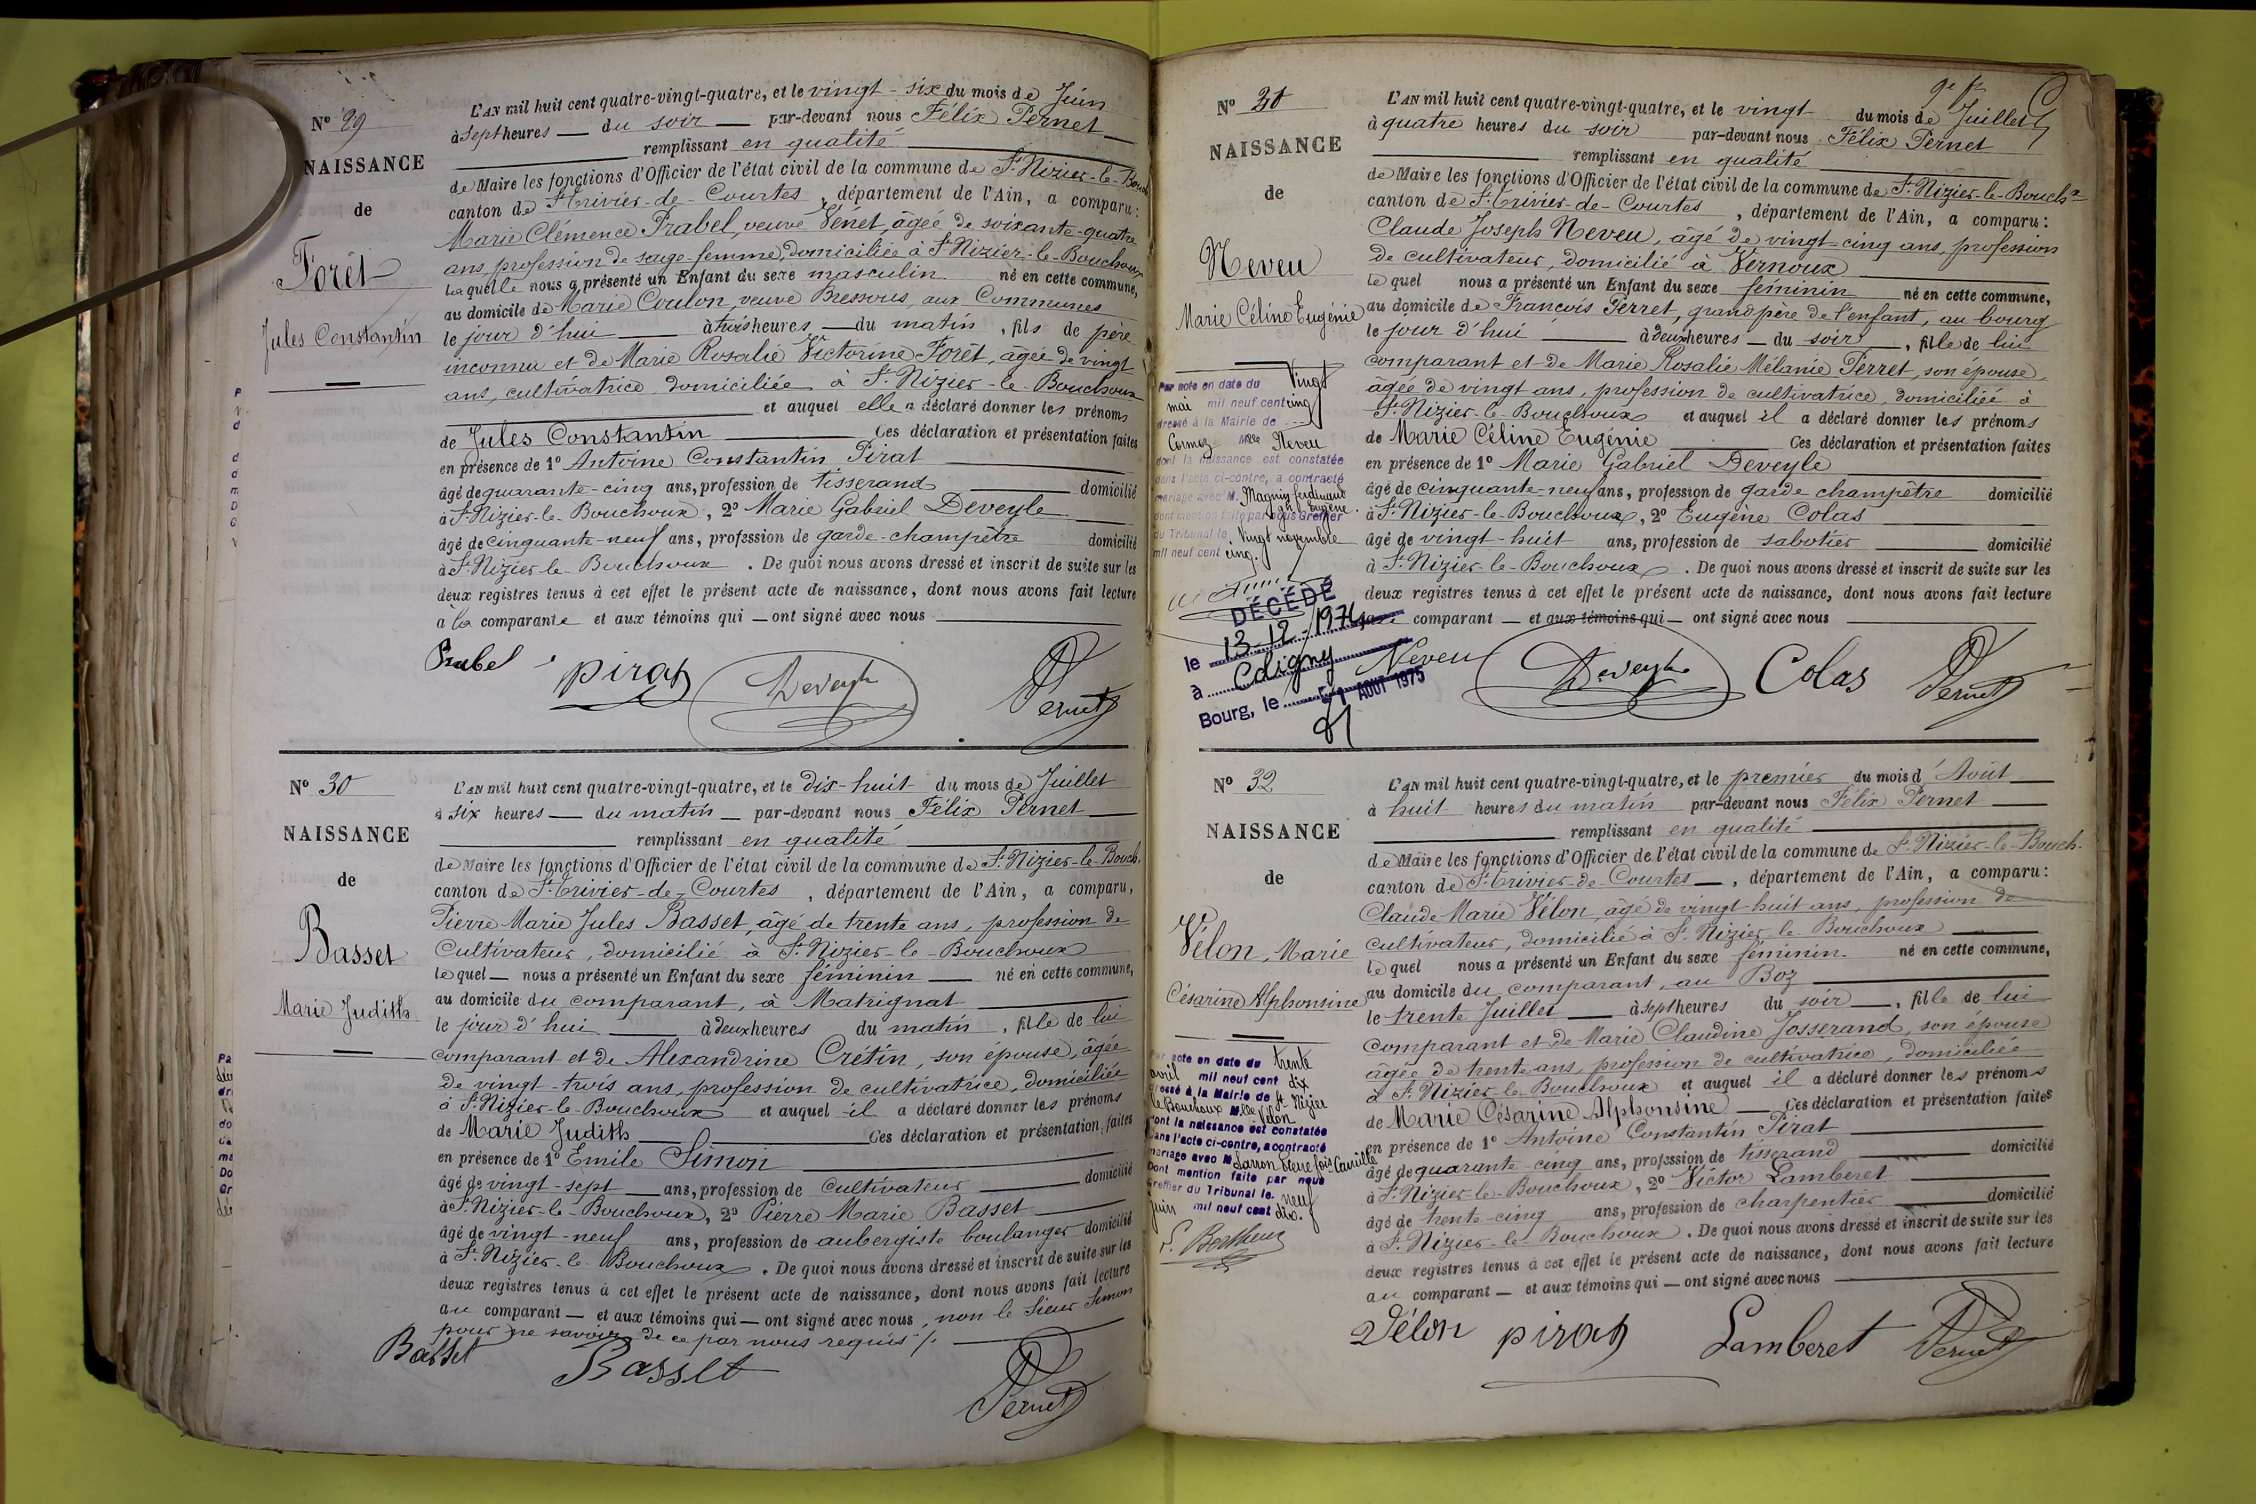 N° 29
NAISSANCE
de
Forêt
Jules Constantin
L'AN mil huit cent quatre-vingt-quatre, et le vingt-six du mois de Juin
à sept heures du soir par-devant nous Félix Pernet
remplissant en qualité
de Maire les fonctions d'Officier de l'état civil de la commune de St Nizier-le-Bouch
canton de St Trivier-de-Courtes, département de l'Ain, a comparu:
Marie Clémence Prabel, veuve Vénet, âgée de soixante-quatre
ans, profession de sage-femme, domiciliée à St Nizier-le-Bouchoux
laquelle nous a présenté un Enfant du sexe masculin né en cette commune,
au domicile de Marie Coulon, veuve Bressoux, aux Communes
le jour d'hui à trois heures du matin, fils de père
inconnu et de Marie Rosalie Victorine Forêt, âgée de vingt
ans, cultivatrice domiciliée à St Nizier-le-Bouchoux
et auquel elle a déclaré donner les prénoms
de Jules Constantin Ces déclaration et présentation faites
en présence de 1° Antoine Constantin Pirat
âgé de quarante-cinq ans, profession de tisserand domicilié
à St Nizier-le-Bouchoux, 2° Marie Gabriel Deveyle
âgé de cinquante-neuf ans, profession de garde-champêtre domicilié
à St Nizier-le-Bouchoux. De quoi nous avons dressé et inscrit de suite sur les
deux registres tenus à cet effet le présent acte de naissance, dont nous avons fait lecture
à la comparante et aux témoins qui ont signé avec nous
Prabel Pirat Deveyle Pernet
N° 30
NAISSANCE
de
Basset
Marie Judith
L'AN mil huit cent quatre-vingt-quatre, et le dix-huit du mois de Juillet
à six heures du matin par-devant nous Félix Pernet
remplissant en qualité
de Maire les fonctions d'Officier de l'état civil de la commune de St Nizier-le-Bouch.
canton de St Trivier-de-Courtes, département de l'Ain, a comparu,
Pierre Marie Jules Basset, âgé de trente ans, profession de
Cultivateur, domicilié à St Nizier-le-Bouchoux
lequel nous a présenté un Enfant du sexe féminin né en cette commune,
au domicile du comparant, à Matrignat
le jour d'hui à deux heures du matin, fille de lui
comparant et de Alexandrine Crétin, son épouse, âgée
de vingt-trois ans, profession de cultivatrice, domiciliée
à St Nizier-le-Bouchoux et auquel il a déclaré donner les prénoms
de Marie Judith Ces déclaration et présentation faites
en présence de 1° Emile Simon
âgé de vingt-sept ans, profession de Cultivateur domicilié
à St Nizier-le-Bouchoux, 2° Pierre Marie Basset
âgé de vingt-neuf ans, profession de aubergiste boulanger domicilié
à St Nizier-le-Bouchoux. De quoi nous avons dressé et inscrit de suite sur les
deux registres tenus à cet effet le présent acte de naissance, dont nous avons fait lecture
au comparant et aux témoins qui ont signé avec nous, non le Sieur Simon
pour ne savoir de ce par nous requis
Basset Basset Pernet
N°
NAISSANCE
de
Neveu
Marie Céline Eugénie
Par acte en date du Vingt
mai mil neuf cent cinq
dressé à la Mairie de
Cormoz Mlle Neveu
dont la naissance est constatée
dans l'acte ci-contre, a contracté
mariage avec M. Magnin Ferdinand
Eugène.
dont mention faite par nous Greffier
du Tribunal le Vingt novembre
mil neuf cent cinq.
DÉCÉDÉ
le 13-12-1974
à Coligny
Bourg, le AOUT 1975
L'AN mil huit cent quatre-vingt-quatre, et le vingt du mois de Juillet
à quatre heures du soir par-devant nous Félix Pernet
remplissant en qualité
de Maire les fonctions d'Officier de l'état civil de la commune de St Nizier-le-Bouchx
canton de St Trivier-de-Courtes, département de l'Ain, a comparu:
Claude Joseph Neveu, âgé de vingt-cinq ans, profession
de cultivateur, domicilié à Vernoux
lequel nous a présenté un Enfant du sexe féminin né en cette commune,
au domicile de François Perret, grand père de l'enfant, au bourg
le jour d'hui à deux heures du soir, fille de lui
comparant et de Marie Rosalie Mélanie Perret, son épouse,
âgée de vingt ans, profession de cultivatrice, domiciliée à
St Nizier-le-Bouchoux et auquel il a déclaré donner les prénoms
de Marie Céline Eugénie Ces déclaration et présentation faites
en présence de 1° Marie Gabriel Deveyle
âgé de cinquante-neuf ans, profession de garde champêtre domicilié
à St Nizier-le-Bouchoux, 2° Eugène Colas
âgé de vingt-huit ans, profession de sabotier domicilié
à St Nizier-le-Bouchoux. De quoi nous avons dressé et inscrit de suite sur les
deux registres tenus à cet effet le présent acte de naissance, dont nous avons fait lecture
comparant et aux témoins qui ont signé avec nous
Neveu Deveyle Colas Pernet
N° 32
NAISSANCE
de
Vélon, Marie
Césarine Alphonsine
Par acte en date du trente
avril mil neuf cent dix
dressé à la Mairie de St Nizier
le Bouchoux Mlle Vélon
dont la naissance est constatée
dans l'acte ci-contre, a contracté
mariage avec M Pierre Camille
Dont mention faite par nous
Greffier du Tribunal le neuf
juin mil neuf cent dix.
L'AN mil huit cent quatre-vingt-quatre, et le premier du mois d'Août
à huit heures du matin par-devant nous Félix Pernet
remplissant en qualité
de Maire les fonctions d'Officier de l'état civil de la commune de St Nizier-le-Bouch.
canton de St Trivier-de-Courtes, département de l'Ain, a comparu:
Claude Marie Vélon, âgé de vingt-huit ans, profession de
cultivateur, domicilié à St Nizier le Bouchoux
lequel nous a présenté un Enfant du sexe féminin né en cette commune,
au domicile du comparant, au Boz
le trente Juillet à sept heures du soir, fille de lui
comparant et de Marie Claudine Josserand, son épouse
âgée de trente ans, profession de cultivatrice, domiciliée
à St Nizier le Bouchoux et auquel il a déclaré donner les prénoms
de Marie Césarine Alphonsine Ces déclaration et présentation faites
en présence de 1° Antoine Constantin Pirat
âgé de quarante-cinq ans, profession de tisserand domicilié
à St Nizier-le-Bouchoux, 2° Victor Lamberet
âgé de trente-cinq ans, profession de charpentier domicilié
à St Nizier-le-Bouchoux. De quoi nous avons dressé et inscrit de suite sur les
deux registres tenus à cet effet le présent acte de naissance, dont nous avons fait lecture
au comparant et aux témoins qui ont signé avec nous
Vélon Pirat Lamberet Pernet